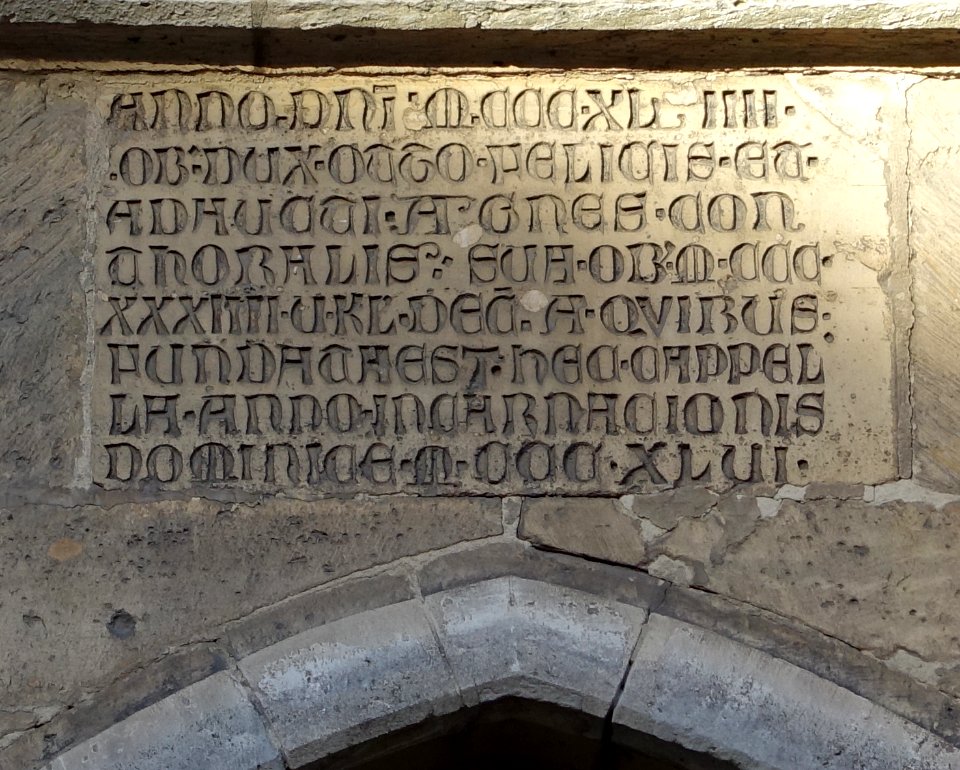 ANNO·DNI·M·CCC·XL·IIII·
·OB·DUX·OTTO·FELICIS·ET·
ADHUCTI·AGNES·CON
THORALIS·SUA·OB·M·CCC
XXXIIII·U·KL·DEC·A·QVIBUS·
FUNDATAEST·HEC·CAPPEL
LA·ANNO·INCARNACIONIS
DOMINICE·M·CCC·XLUI·